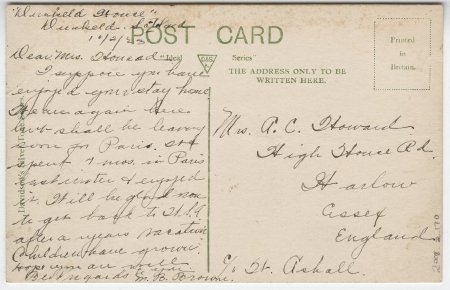 "Dunkeld House"
Dunkeld. Scotland
POST CARD
Dear Mrs. Howard
"Ideal Series"
I suppose you have
enjoyed your stay home.
We are again here
but shall be leaving
soon for Paris.
spent 4 mos. in Paris
last winter & enjoyed
it. Will be glad now
to get back to
after a years vacation
Children have grown.
Hope you are well
Best regards M. B. Browne.
THE ADDRESS ONLY TO BE
WRITTEN HERE.
Printed
in
Britain.
Mrs. A. C. Howard
High House Rd
Harlow
Essex
England
c/o St. Ashall.